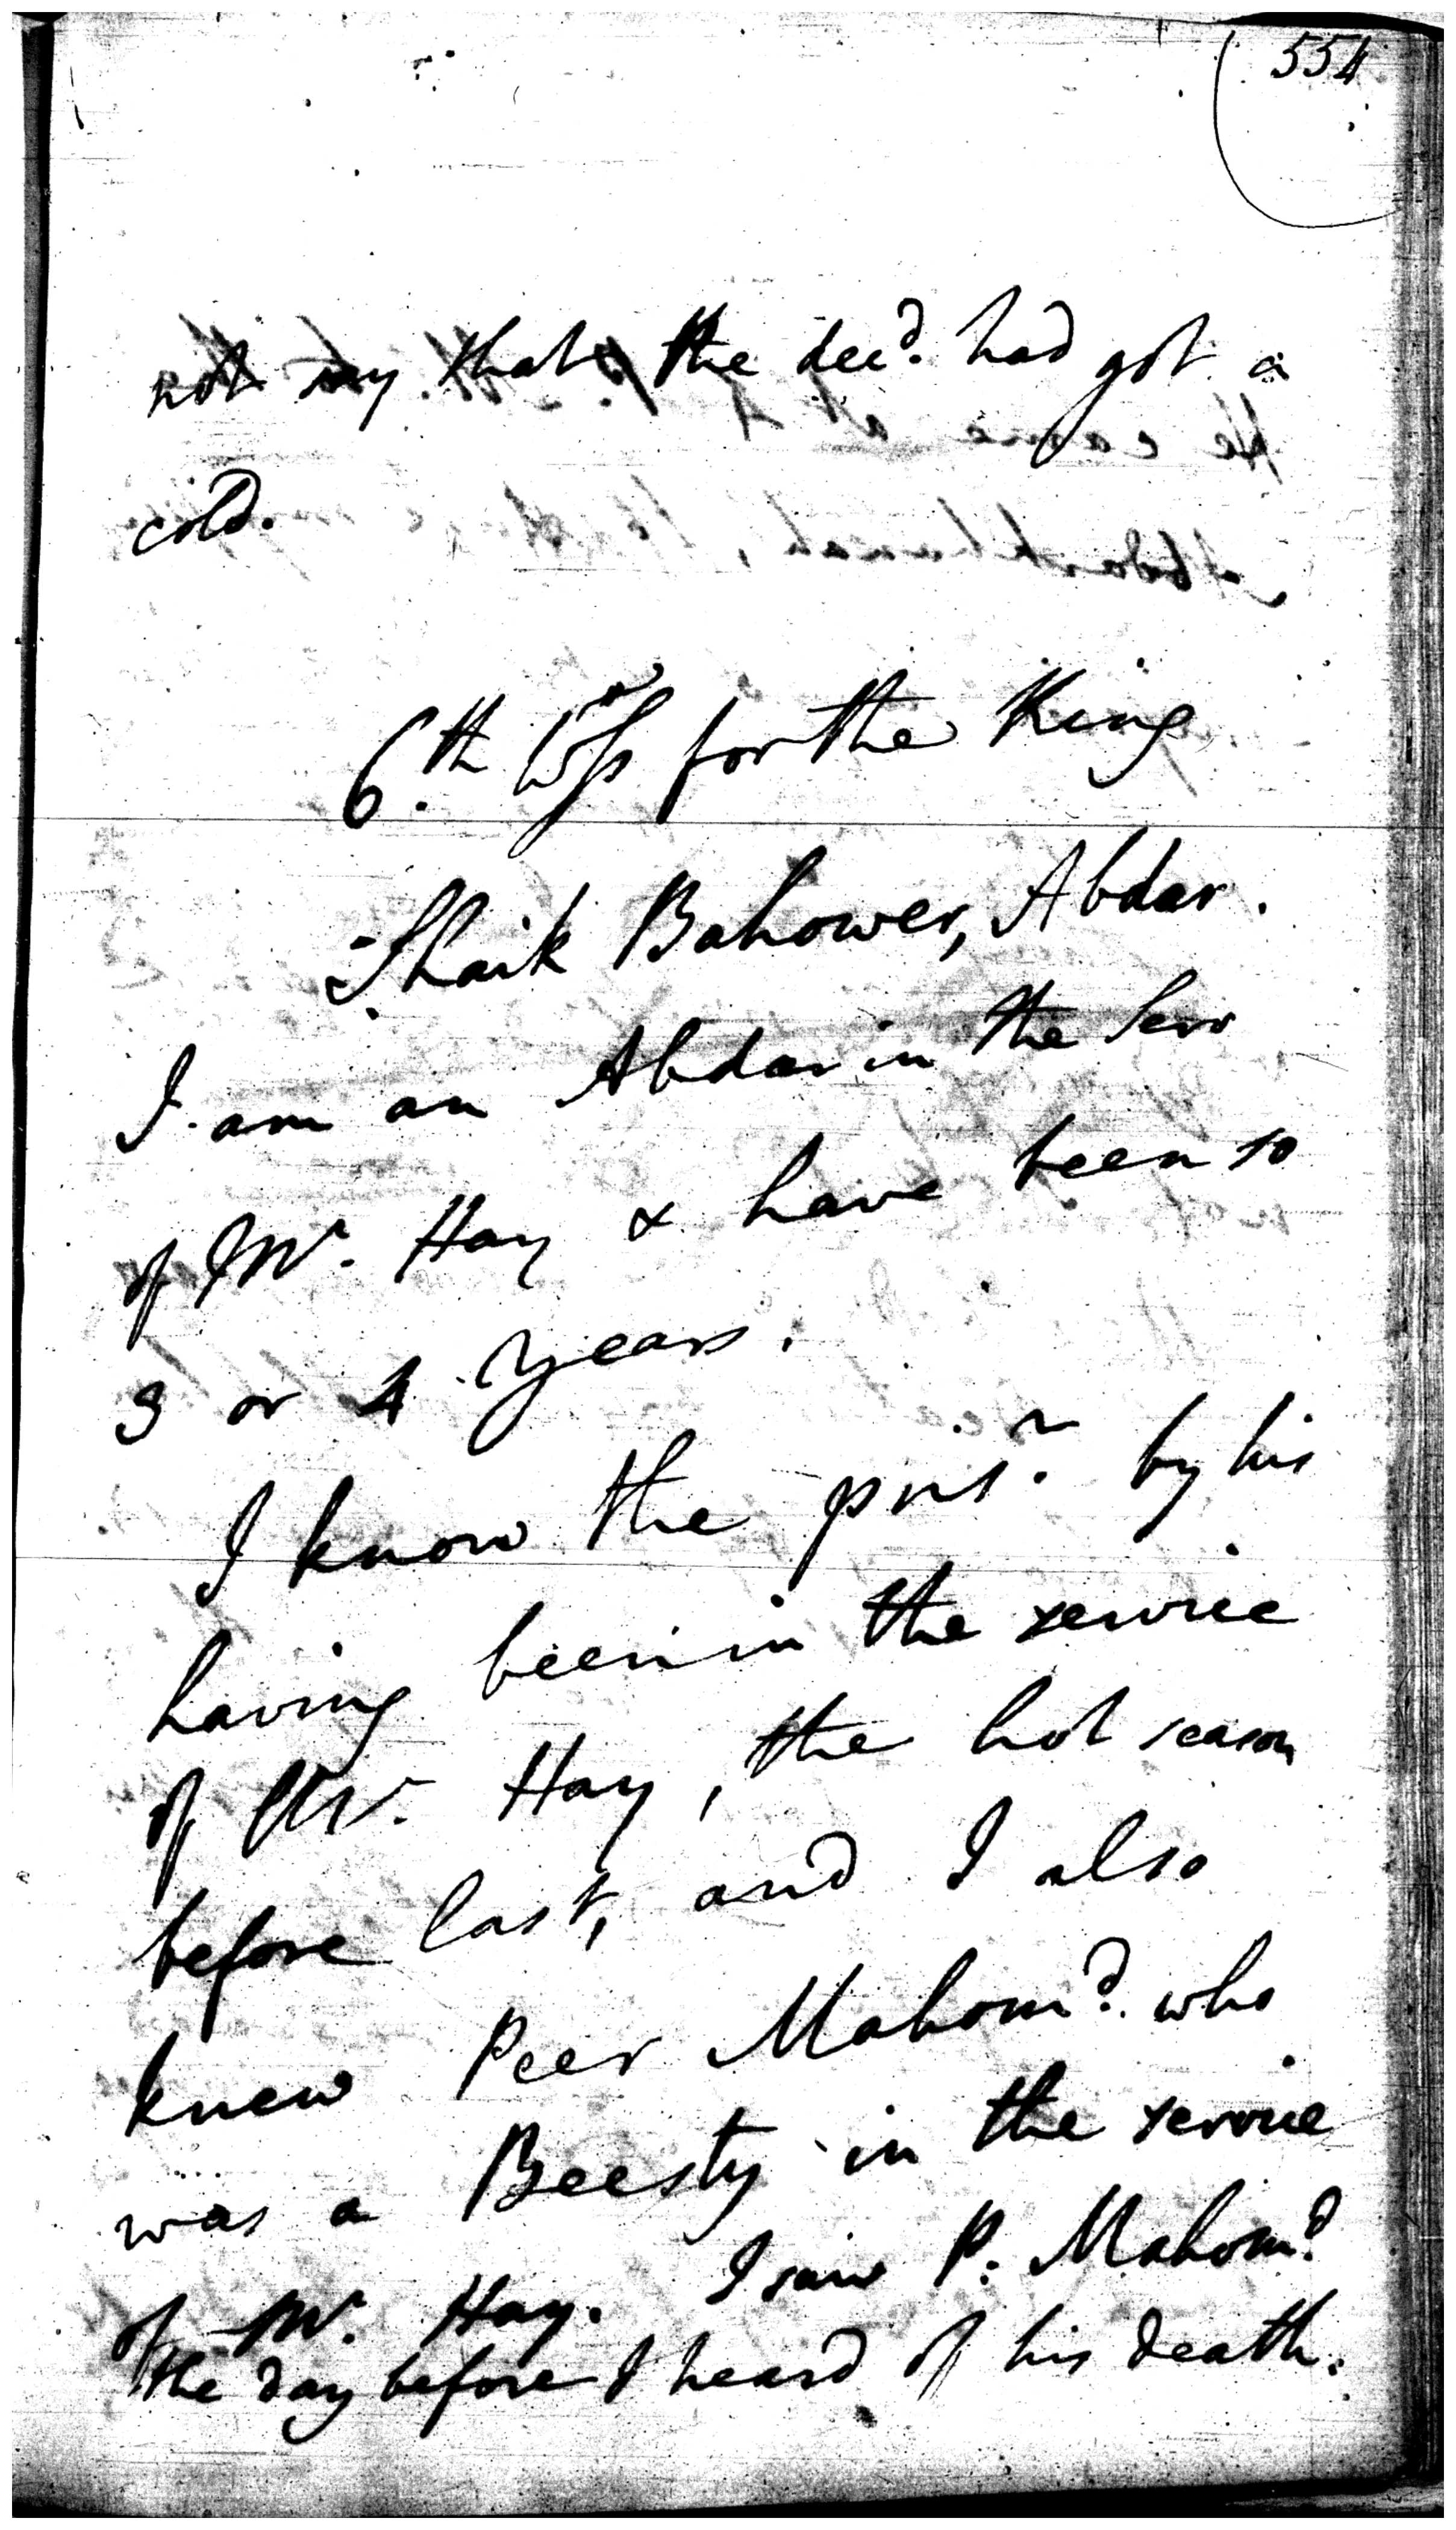 554
not say that the dec.d had got a
cold.
6.th Wss for the King
Shaik Bahower, Abdar.
I am an Abdar in the Serv
of Mr. Hay & have been so
3 or 4 years.
I know the prisr. by his
having been in the service
of Mr. Hay, the hot season
before last, and I also
knew Peer Mahomd. who
was a Beesty in the service
of Mr. Hay. I saw P. Mahomd.
the day before I heard of his death.